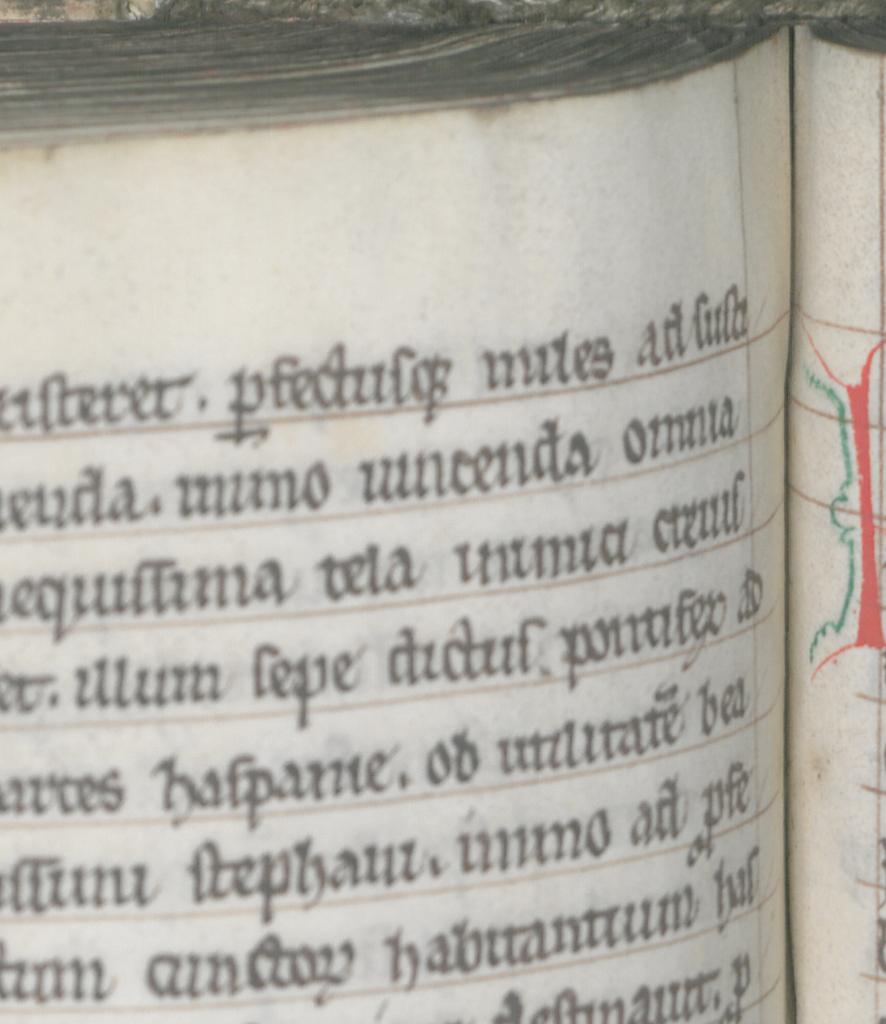 isteret. pfectusq; miles ad suste
nenda. immo uincenda omnia
nequissima tela inimici ciuis
et. illum sepe dictus pontifex ad
partes haspanie. ob utilitatē bea
issimi stephani. immo ad pfe
ctum cunctoꝝ habitantium has
destinauit. p